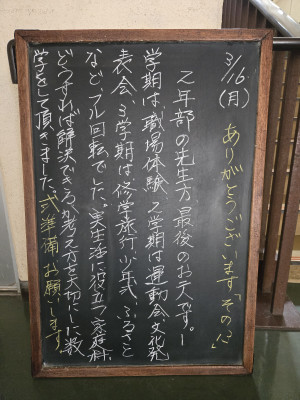 3/16(月)
ありがとうございます「その12」
2年部の先生方最後のお一人です。1
学期は、職場体験、2学期は運動会、文化発
表会、3学期は修学旅行、少年式、ふるさと
など、フル回転でした。実生活に役立つ家庭科
どうすれば解決できるか考え方を大切にした数
学をして頂きました。式準備お願いします。